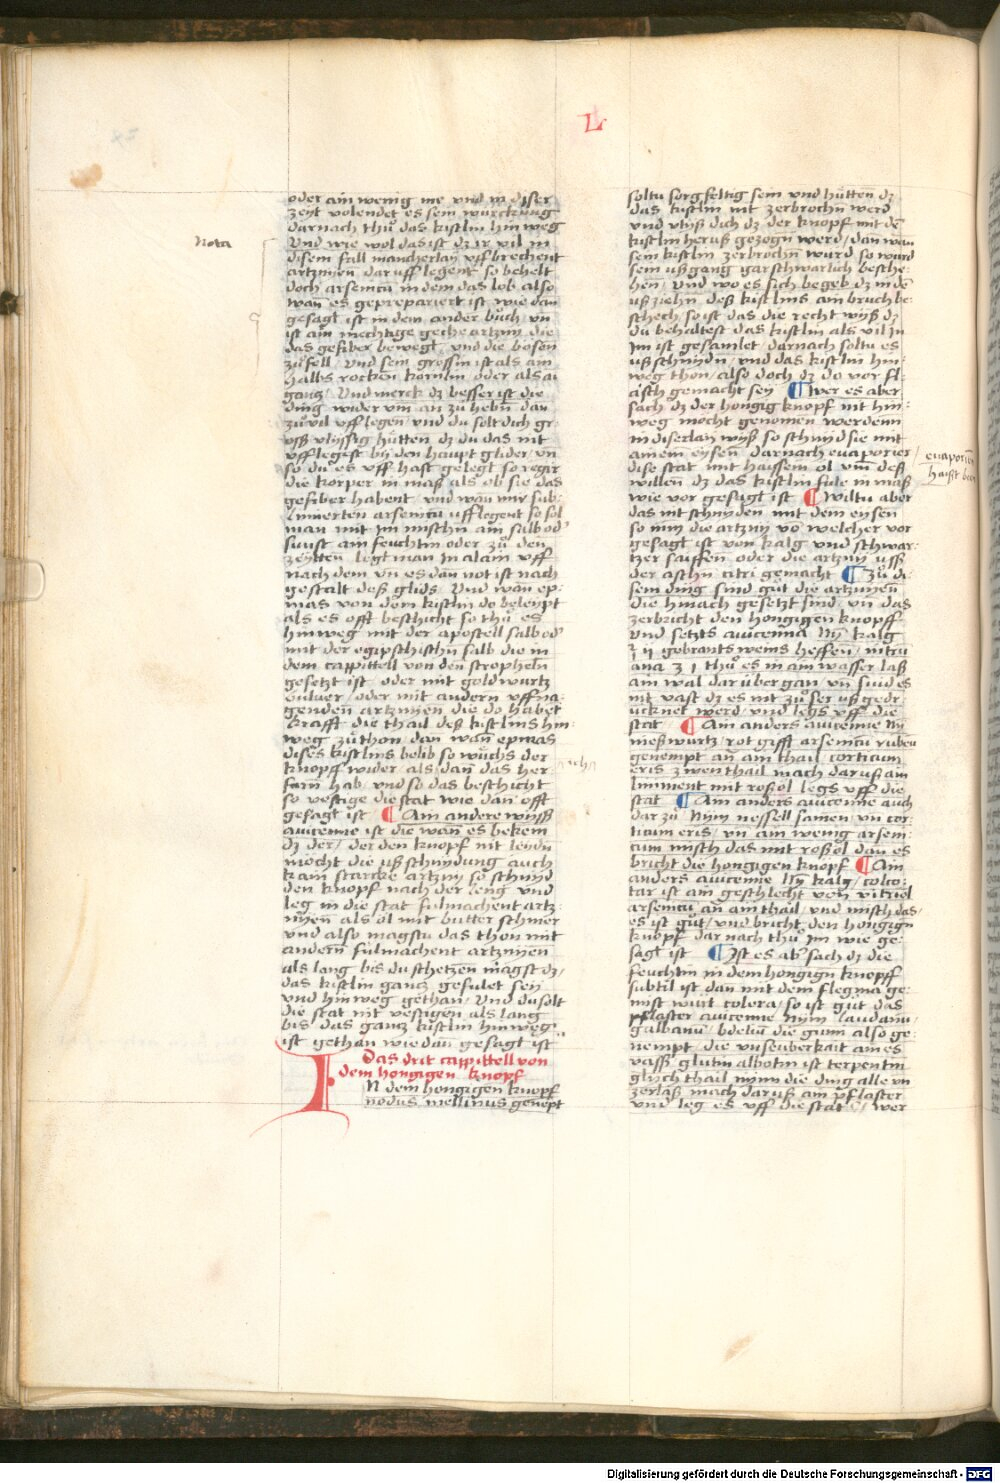 L
oder ain wenig me vnd in diser
zeyt volendet es sein würckung
darnach thů das kistlin hin weg
Nota
Vnd wie wol das ist dz ir vil in
disem fall mancherlay vffbrechent
artznien dar vff legent so behelt
doch arsenicū in dem das lob also
wan̄ es geprepariert ist wie dan
gesagt ist in dem ander bůch vn̄
ist ain mechtige geche artzny die
das gefiber bewegt vnd die bosen
zůfell / vnd sein grossin ist als ain
halbs rocken kornlin oder als ai
gantz / Vnd merck dz besser ist die
ding wider vm an zů hebn̄ dan
zůvil vff legen / vnd du solt dich gr
oß vlyssig hütten dz du das nit
vfflegest bÿ den haupt glider / vn̄
so du es vff hast gelegt so regir
die korper in maß als ob sie das
gefiber habent vnd wan̄ mir sub:
limierten arsenicū vfflegent so sol
man mit im mischn ain salb od'
sunst ain feuchtin oder zů den
zeytten legt man in alain vff
nach dem vn̄ es dan not ist nach
gestalt deß glids / Vnd wan̄ ep:
mas von dem kistlin do beleypt
als es offt beschicht so thů es
hinweg mit der apostell salb od'
mit der egipschischn salb die in
dem cappittell von den strophelen
gesetzt ist oder mit goldwurtz
puluer / oder mit andern vffna:
genden artznien die do habet
krafft die thail deß kistlins hin
weg zůthon / dan wan̄ epmas
dises kistlins belib so wüchs der
knopff wider / als dan̄ das her
farn̄ hab / vnd so das beschicht
so vestige die stat wie dan offt
gesagt ist ¶ Ain andere wyß
auicenne ist die wan̄ es bekem
dz der / der den knopf nit leydn
mocht die ußschnidung auch
kain starcke artzny so schnyd
den knopf nach der leng vnd
leg in die stat fulmachent artz:
nyen als ol mit butter schmer
vnd also magstu das thon mit
andern̄ fulmachent artznyen
als lang bis du schetzen magst dz
das kistlin gantz gefulet sey
vnd hinweg gethan / Vnd du solt
die stat nit vestigen als lang
bis das gantz kistlin hinweg
ist gethan wie dan gesagt ist
Das drit cappittell von
dem hongigen knopf
IN dem hongigen knopf
nodus mellinus genēpt
soltu sorgfeltig sein vnd hütten dz
das kistlin nit zerbrochn werd
vnd vlyß dich dz der knopf mit dē
kistlin heruß gezogn werd / dan wan
sein kistlin zerbrochn̄ wurd so wurd
sein ußgang gar schwarlich besche:
hen / Vnd wo es sich begeb dz in dē
uß ziehn deß kistlins ain bruch be:
schech so ist das die recht wyß dz
du behaltest das kistlin als vil in
im ist gesamlet / darnach soltu es
ußschnydn / vnd das kistlin hin:
weg thon / also doch dz do vor fl:
aisch gemacht sey ¶ Wer es aber
sach dz der hongig knopf nit hin:
weg mocht genomen werdenn
in diserlay wyß so schnyd sie mit
ainem eysen / darnach euaporier
dise stat mit haissem ol vm̄ deß
willen dz das kistlin fule in maß
wie vor gesagt ist ¶ Wiltu aber
das nit schnyden mit dem eysen
so nim die artzny vō welcher vor
gesagt ist von kalg vnd schwar:
tzer saiffen / oder die artzny uß
der aschn citri gemacht ¶ Zů di:
sem ding sind gůt die artznyen
die hinach gesetzt sind / vn̄ das
zerbricht den hongigen knopff
vnd setzts auicenna Nȳ kalg
ʒ ii gebrants weins heffen / nitrū
ana ʒ i thů es in ain wasser laß
ain wal darüber gan / vn̄ suid es
nit vast dz es nit zů ser uß gedr:
ucknet werd / vnd legs vff die
stat ¶ Ain anders auicenne Nȳ
nießwurtz / rot gifft arsenicū rubeū
genempt an̄ ain thail corticum
eris zwen thail mach daruß ain
liniment mit roßol legs vff die
stat ¶ Ain anders auicenne auch
dar zů / Nym nessell samen / vn̄ cor:
ticum eris / vn̄ ain wenig arseni:
cum misch das mit roßol dan es
bricht die hongigen knopf ¶ Ain
anders auicenne Nȳ kalg / colco:
tar ist ain geschlecht von vitriol
arsenicū an̄ ain thail / vnd misch das
es ist gůt / vnd bricht den hongign
knopf dar nach thů im wie ge:
sagt ist ¶ Ist es ab' sach dz die
feuchtin in dem hongign knopff
subtil ist dan mit dem flegma ge:
mist wurt colera / so ist gut das
pflaster auicenne nym laudanū
galbanū / bdeliū die gum̄ also ge:
nempt / die vnseuberkait aines
vasß / glutin albotin ist terpentin
glych thail nym die ding alle vn̄
zerlaß mach daruß ain pflaster
vnd leg es vff die stat / wer
euaporiern̄